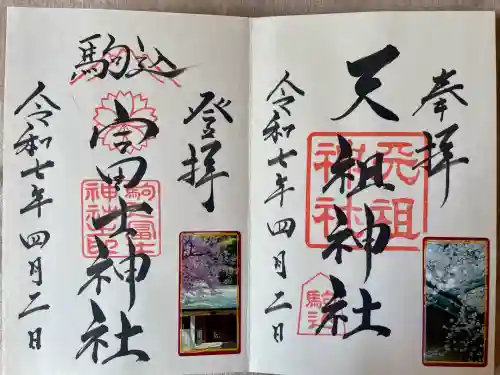 奉拝
天祖神社
天祖神社
駒込
令和七年四月二日
登拝
駒込
冨士神社
駒込富士神社印
令和七年四月二日